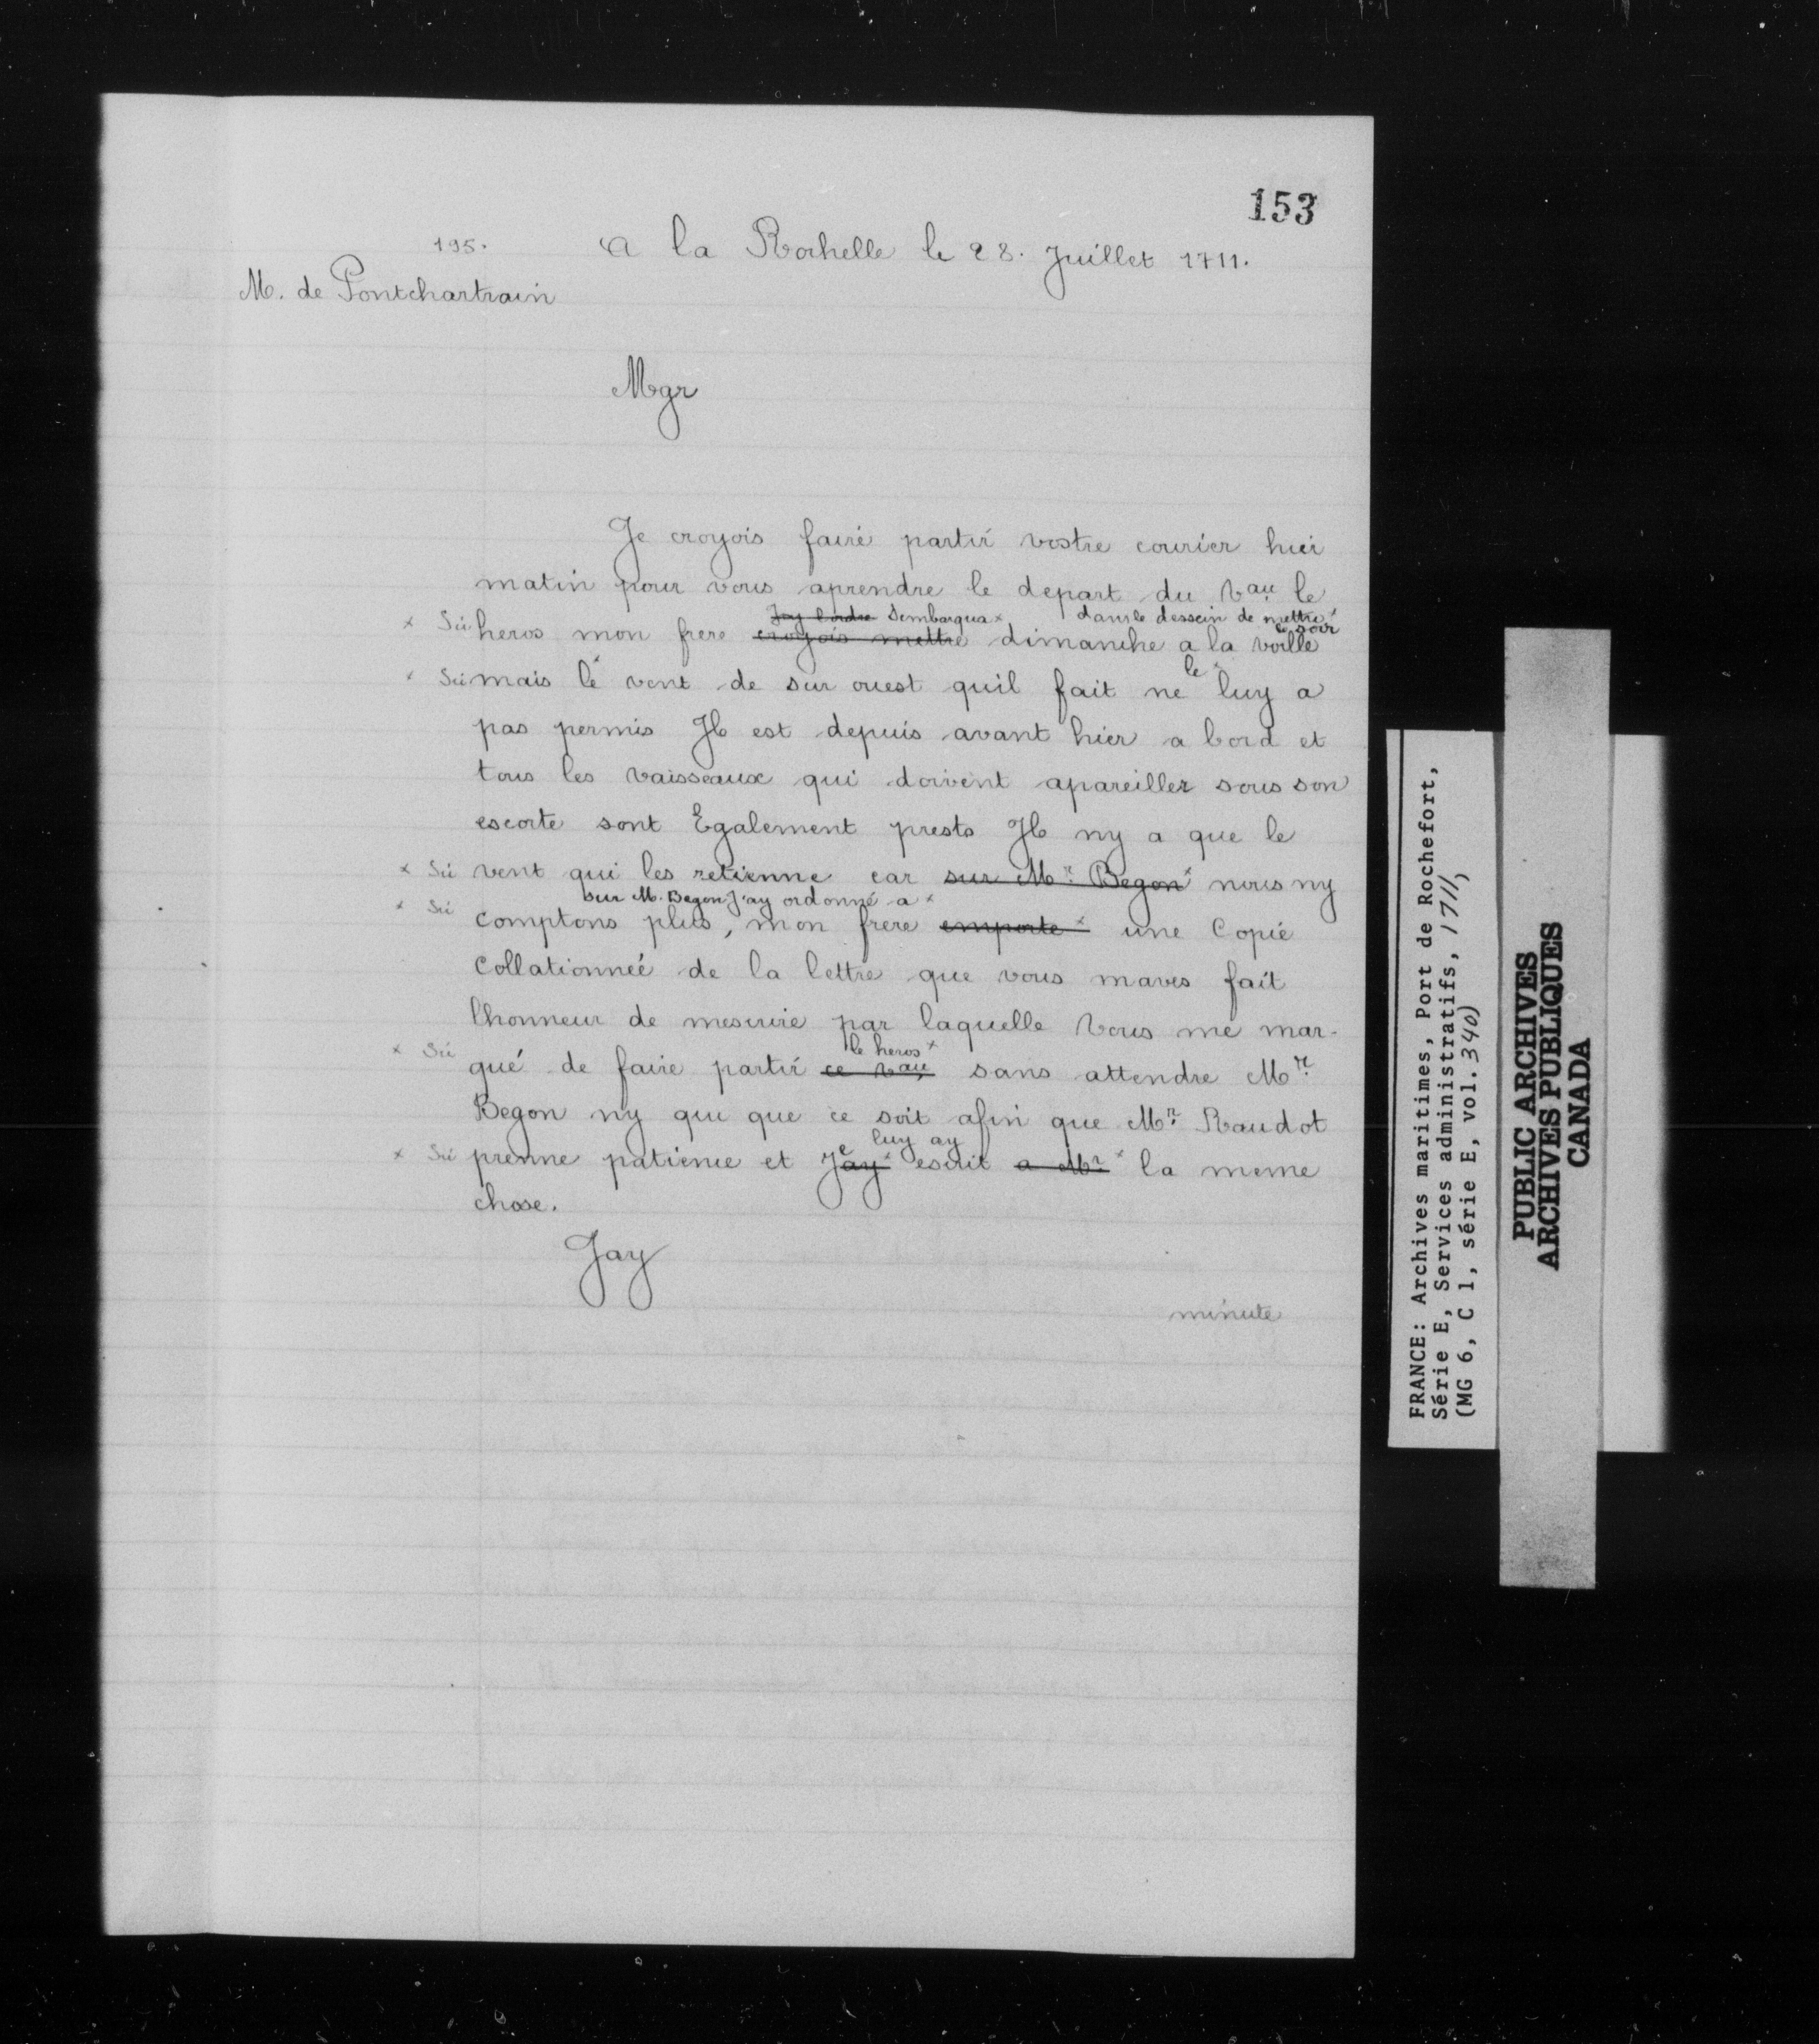 153
195.
A la Rochelle le 28. Juillet 1711.
M. de Pontchartrain
Mgr
Je croyois faire partir vostre courier hier
matin pour vous aprendre le depart du Vau le
Jay lordre Sembarqua x dans le dessein de mettre x
le soir
x Sic heros mon frere croyois mettre dimanche a la voille
le x
x Sic mais le x vent de sur ouest quil fait ne luy a
pas permis Il est depuis avant hier a bord et
tous les vaisseaux qui doivent apareiller sous son
escorte sont Egalement prests Il ny a que le
x Sic vent qui les retienne car sur Mr. Begon x nous ny
sur M. Begon J'ay ordonné a x
x Sic comptons plus, mon frere emporte x une Copie
Collationneé de la lettre que vous maves fait
lhonneur de mescrire par laquelle Vous me mar-
le heros x
x Sic qué de faire partir ce vau sans attendre Mr.
Begon ny qui que ce soit afin que Mr. Raudot
e luy ay
x Sic prenne patience et Jay x escrit a Mr x la meme
chose.
Jay
minute
FRANCE: Archives maritimes, Port de Rochefort,
Série E, Services administratifs, 1711,
(MG 6, C 1, série E, vol. 340)
PUBLIC ARCHIVES
ARCHIVES PUBLIQUES
CANADA